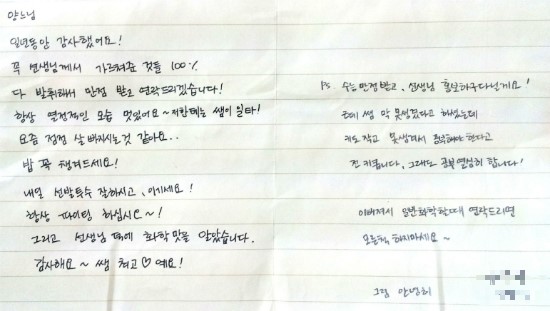 일년동안 감사했어요!
꼭 선생님께서 가르쳐준 것들 100%
다 발휘해서 만점 받고 연락드리겠습니다!
항상 열정적인 모습 멋있어요~ 저한테는 쌤이 일타!
요즘 점점 살 빠지시는것 같아요..
밥 꼭 챙겨드세요!
내일 선발투수 잘하시고, 이기세요!
항상 파이팅 하십시오~!
그리고 선생님 덕에 화학맛을 알았습니다.
감사해요~ 쌤 최고♡ 예요!
PS. 수능만점받고, 선생님 홍보하구다닐게요!
쌤 막 못생겼다고 하셨는데
키도 작고 못생겨서 한다고
전 키큽니다, 그래도 공부 열심히 합니다!
연락드리면
모른척 하지마세요~
그럼 안녕히